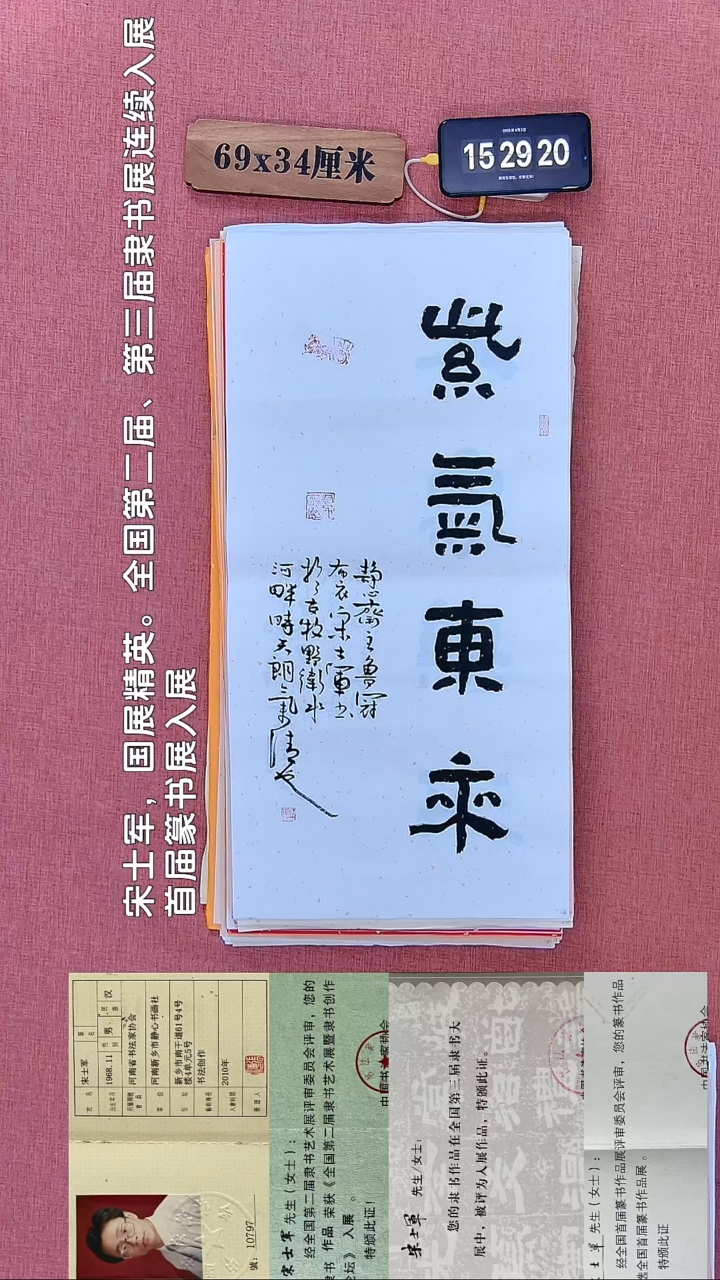 69x34厘米
15 29 20
宋士军，国展精英。全国第二届、第三届隶书展连续入展
首届篆书展入展
紫气東来
静心斋主鲁冠
布衣宋士军书
於古牧野衛水
河畔時天朗气清也
宋士军
1968.11
男
汉
河南省书法家协会
河南新乡市静心书画社
新乡市南干道61号4号
楼4单元5号
书法创作
2010年
號：10797
宋士军 先生（女士）：
经全国第二届隶书艺术展评审委员会评审，您的
隶书 作品 荣获《全国第二届隶书艺术展暨隶书创作
论坛》 入展 。
特颁此证！
宋士军 先生/女士：
您的隶书作品在全国第三届隶书大
展中，被评为入展作品，特颁此证。
士军 先生（女士）：
经全国首届篆书作品展评审委员会评审，您的篆书作品
选全国首届篆书作品展。
特颁此证